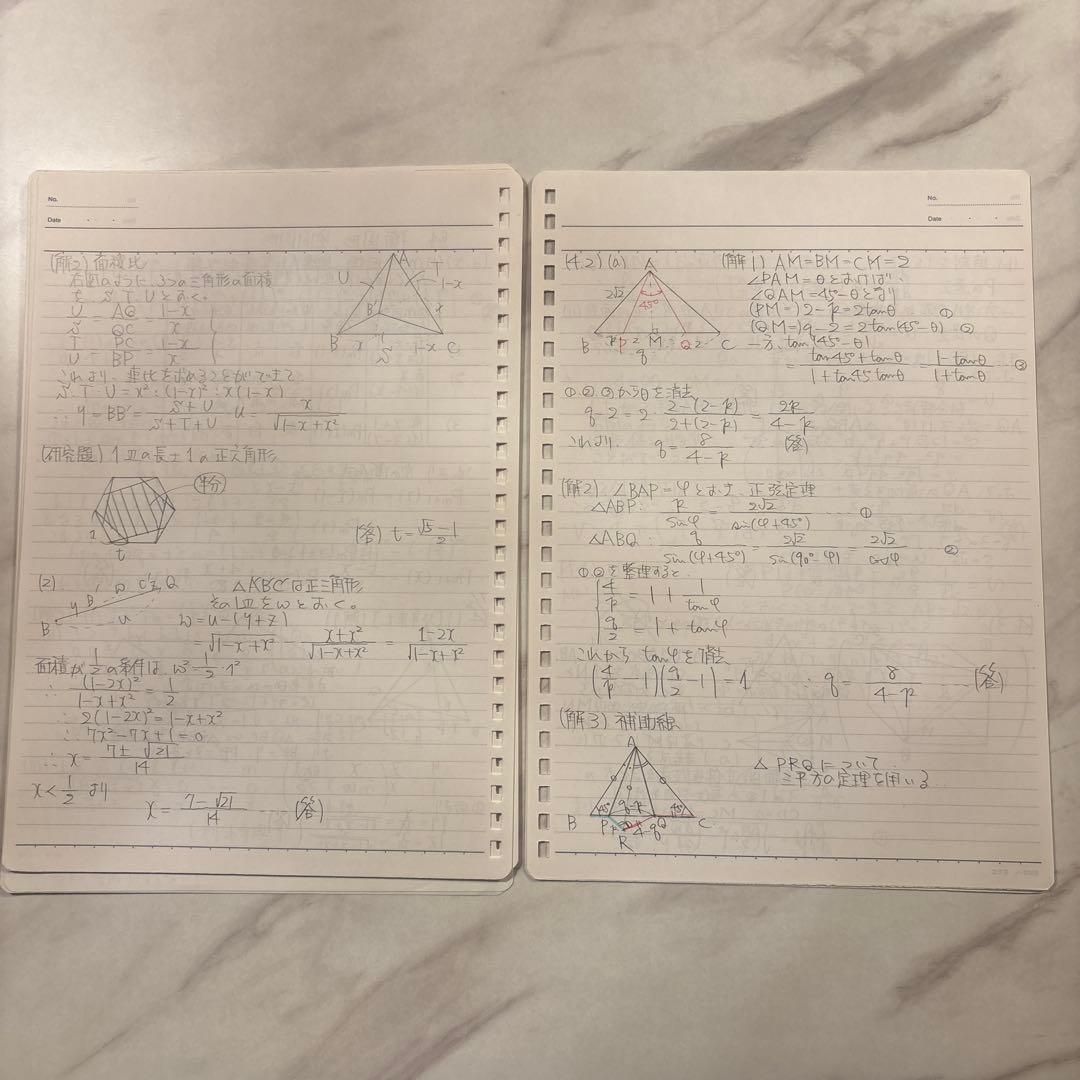 No.
Date
(解2) 面積比
右図のように、3つの三角形の面積
を S, T, U とおく。
U/S = AQ/QC = (1-x)/x
T/U = PC/BP = (1-x)/x
これより、連比を求めることができて
S:T:U = x²:(1-x)²:x(1-x)
∴ y = BB' = (S+U)/(S+T+U) u = x/√(1-x+x²)
A
U
T
1-x
B'
x
B
x
S
1-x
C
(研究題) 1辺の長さ1の正六角形
半分
1
t
(答) t = (√5-1)/2
(2)
B
y
B'
w
C'
z
Q
u
△A'B'C'は正三角形
その1辺をwとおく。
w = u-(y+z)
= √(1-x+x²) - (x+x²)/√(1-x+x²) = (1-2x)/√(1-x+x²)
面積が1/2の条件は、w² = 1/2・1²
∴ (1-2x)²/(1-x+x²) = 1/2
∴ 2(1-2x)² = 1-x+x²
∴ 7x²-7x+1=0
∴ x = (7±√21)/14
x < 1/2 より
x = (7-√21)/14 …… (答)
No.
Date
(4.2) (a)
A
2√2
45°
B
p
P
2
M
Q
2
C
q
(解1) AM=BM=CM=2
∠PAM=θとおけば
∠QAM=45°-θとなり
(PM=) 2-p=2tanθ ①
(QM=) q-2=2tan(45°-θ) ②
一方、tan(45°-θ)
= (tan45°+tanθ)/(1+tan45tanθ) = (1-tanθ)/(1+tanθ) ③
①、②、③からθを消去
q-2 = 2・(2-(2-p))/(2+(2-p)) = 2p/(4-p)
これより、 q = 8/(4-p) (答)
(解2) ∠BAP=φとおき、正弦定理
△ABP: p/sinφ = 2√2/sin(φ+45°) ①
△ABQ: q/sin(φ+45°) = 2√2/sin(90°-φ) = 2√2/cosφ ②
①、②を整理すると、
4/p = 1 + 1/tanφ
q/2 = 1 + tanφ
これから tanφを消去
(4/p - 1)(q/2 - 1) = 1 ∴ q = 8/(4-p) …… (答)
(解3) 補助線
A
45°
q-p
45°
B
P
p
4-q
Q
C
R
△PRQについて
三平方の定理を用いる